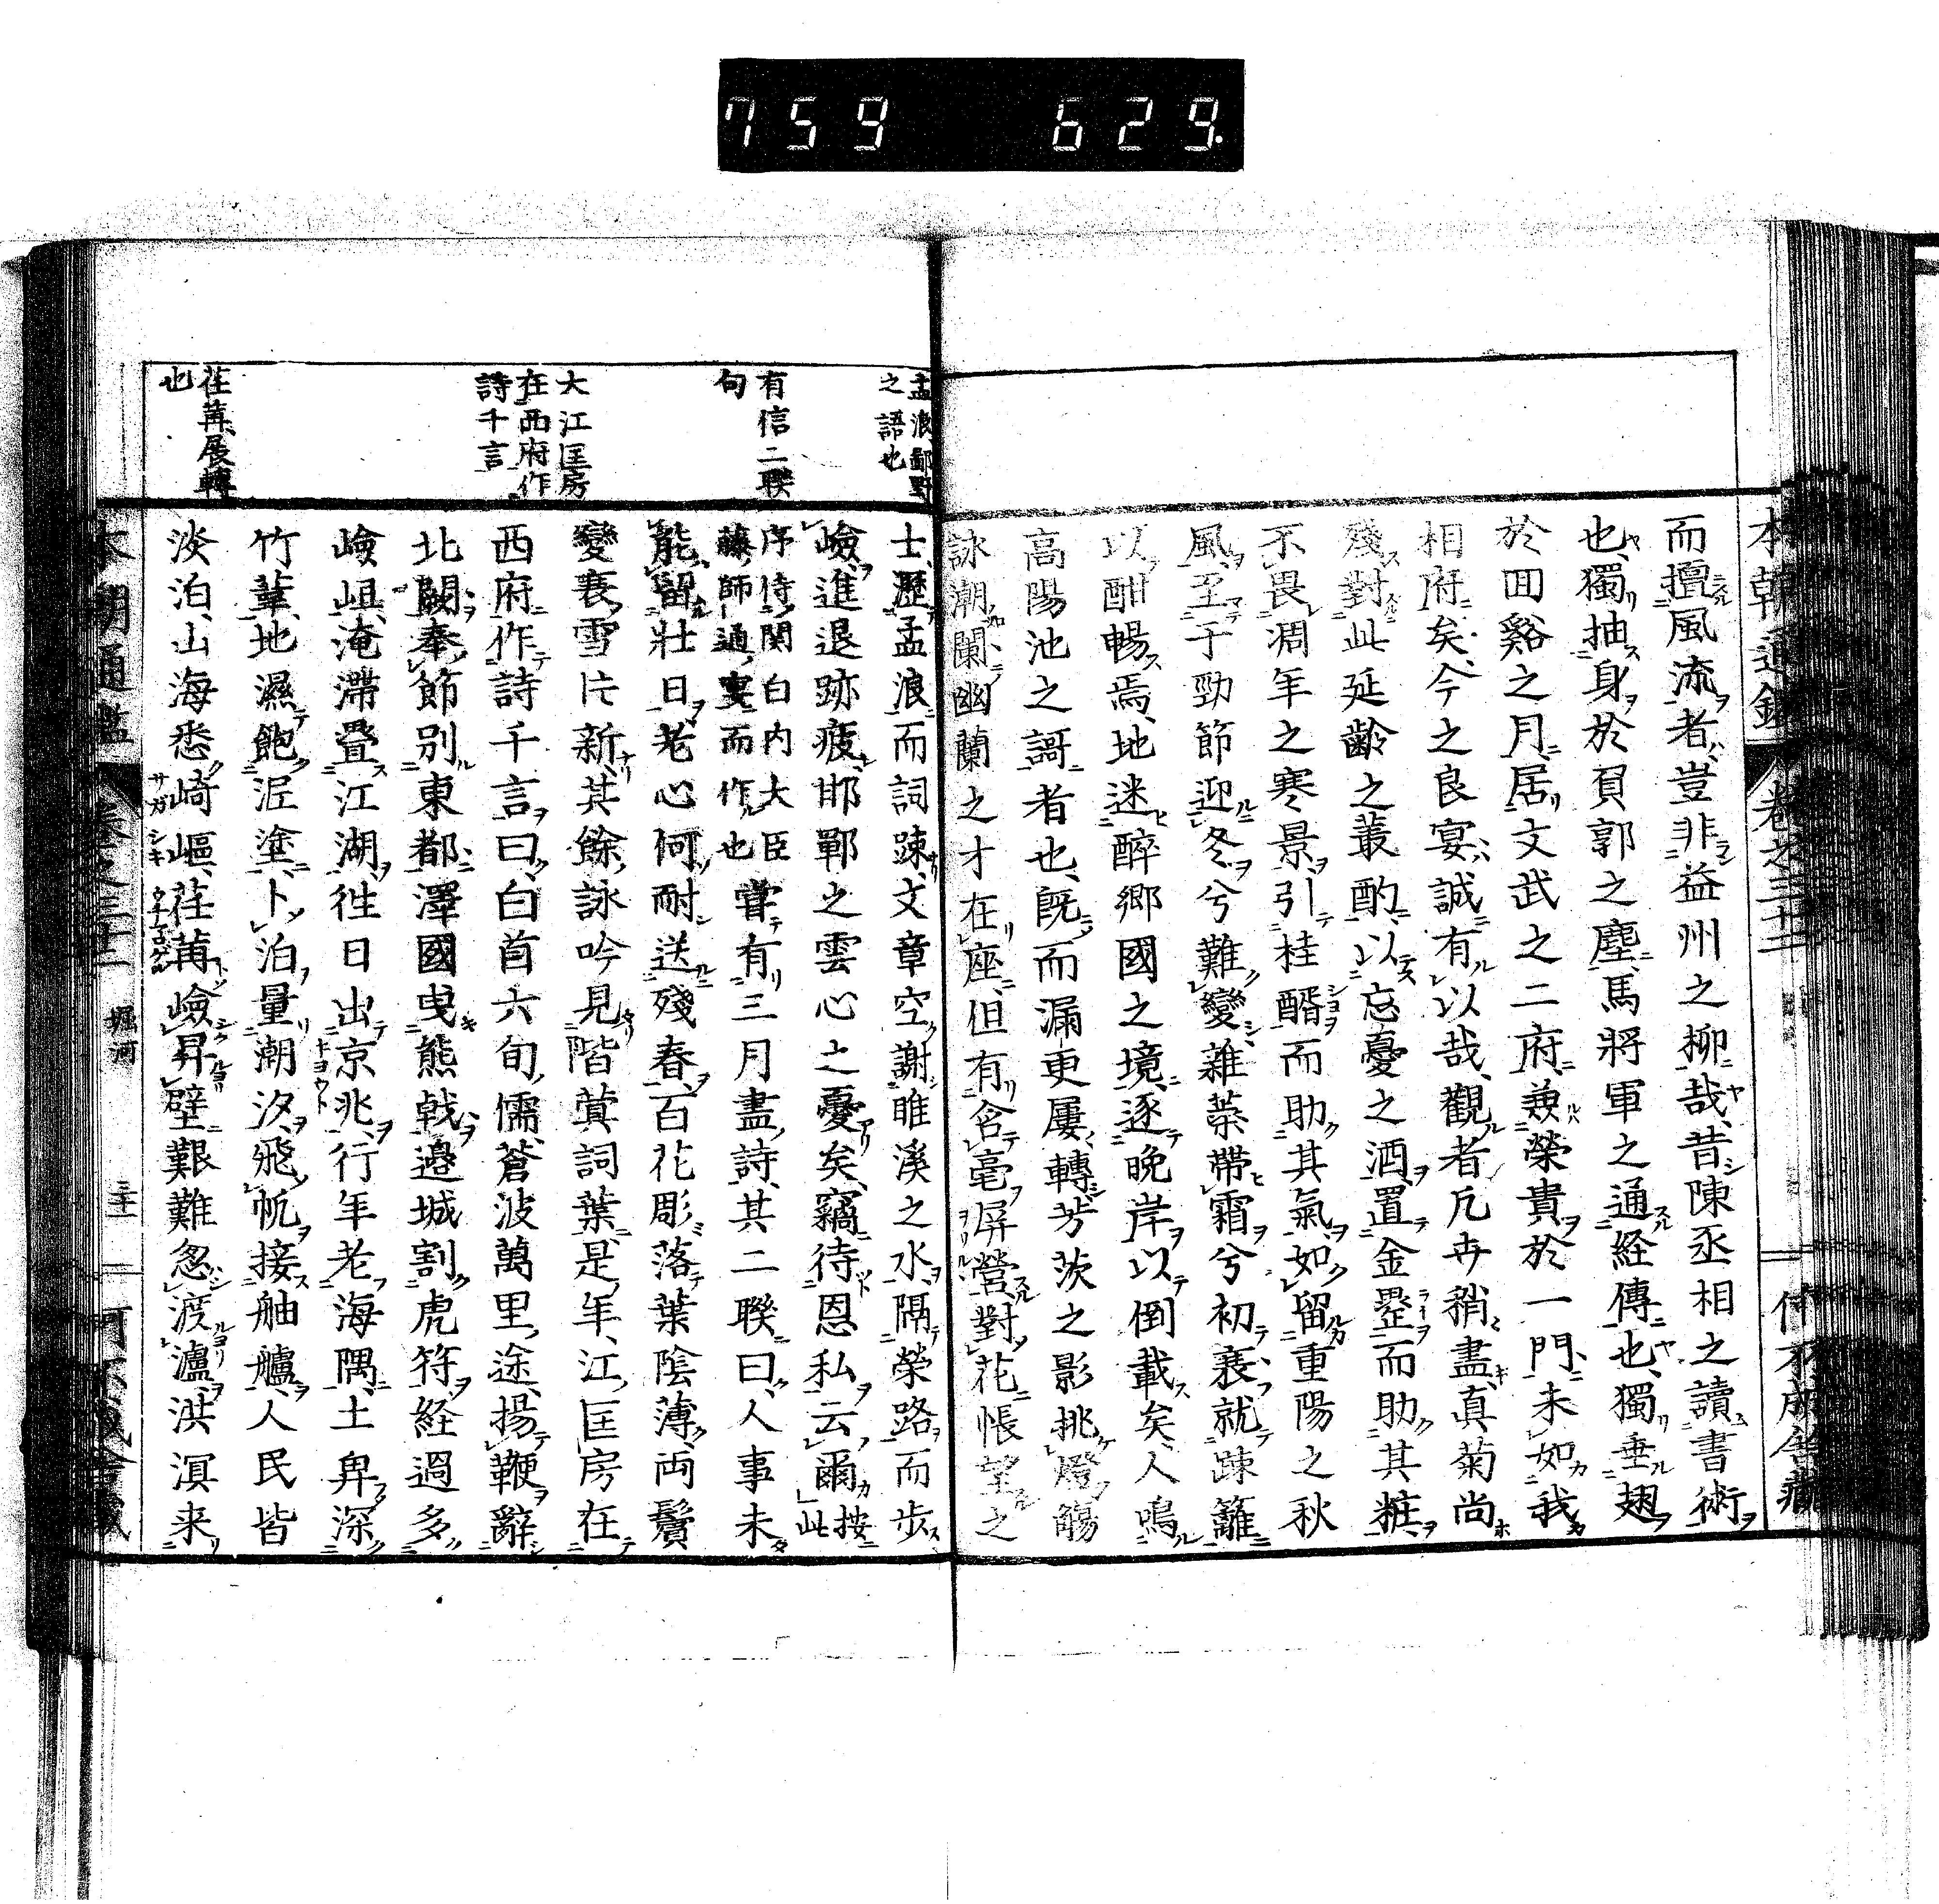 759 629.
而擅風流者豈非益州之柳哉昔陳丞相之讀書術
也獨抽身於負郭之塵馬將軍之通経傳也獨垂翅
於回谿之月居文武之二府兼榮貴於一門未如我
相府矣今之良宴誠有以哉觀者凡卉稍盡真菊尚
殘對此延齡之叢酌以忘憂之酒置金罍而助其粧
不畏凋年之寒景引桂醑而助其氣如留重陽之秋
風至于勁節迎冬兮難變雜蘂帶霜兮初衰就踈籬
以酣暢焉地迷醉郷國之境逐晚岸以倒載矣人鳴
高陽池之謌者也既而漏更屢轉芳茨之影挑燈觴
詠潮闌幽蘭之才在座但有含毫屏營對花悵望之
士歷孟浪而詞踈文章空謝睢溪之水隔榮路而歩
嶮進退跡疲邯鄲之雲心之憂矣竊待恩私云爾按此
序侍関白内大臣
藤師通宴而作也嘗有三月盡詩其二聯曰人事未
能留壯日老心何耐送殘春百花彫落葉陰薄両鬢
變衰雪片新其餘詠吟見皆蓂詞葉是年江匡房在
西府作詩千言曰白首六旬儒蒼波萬里途揚鞭辭
北闕奉節別東都澤國曳熊戟邉城割虎符経過多
嶮岨淹滯疊江湖徃日出京兆行年老海隅土卑深
竹葦地濕飽泥塗卜泊量潮汐飛帆接舳艫人民皆
淡泊山海悉崎嶇荏苒嶮昇壁艱難忽渡瀘洪溟来
孟浪鄙野
之語也
有信二聯
句
大江匡房
在西府作
詩千言
荏苒展轉
也
本朝通鑑 卷之三十二 堀河